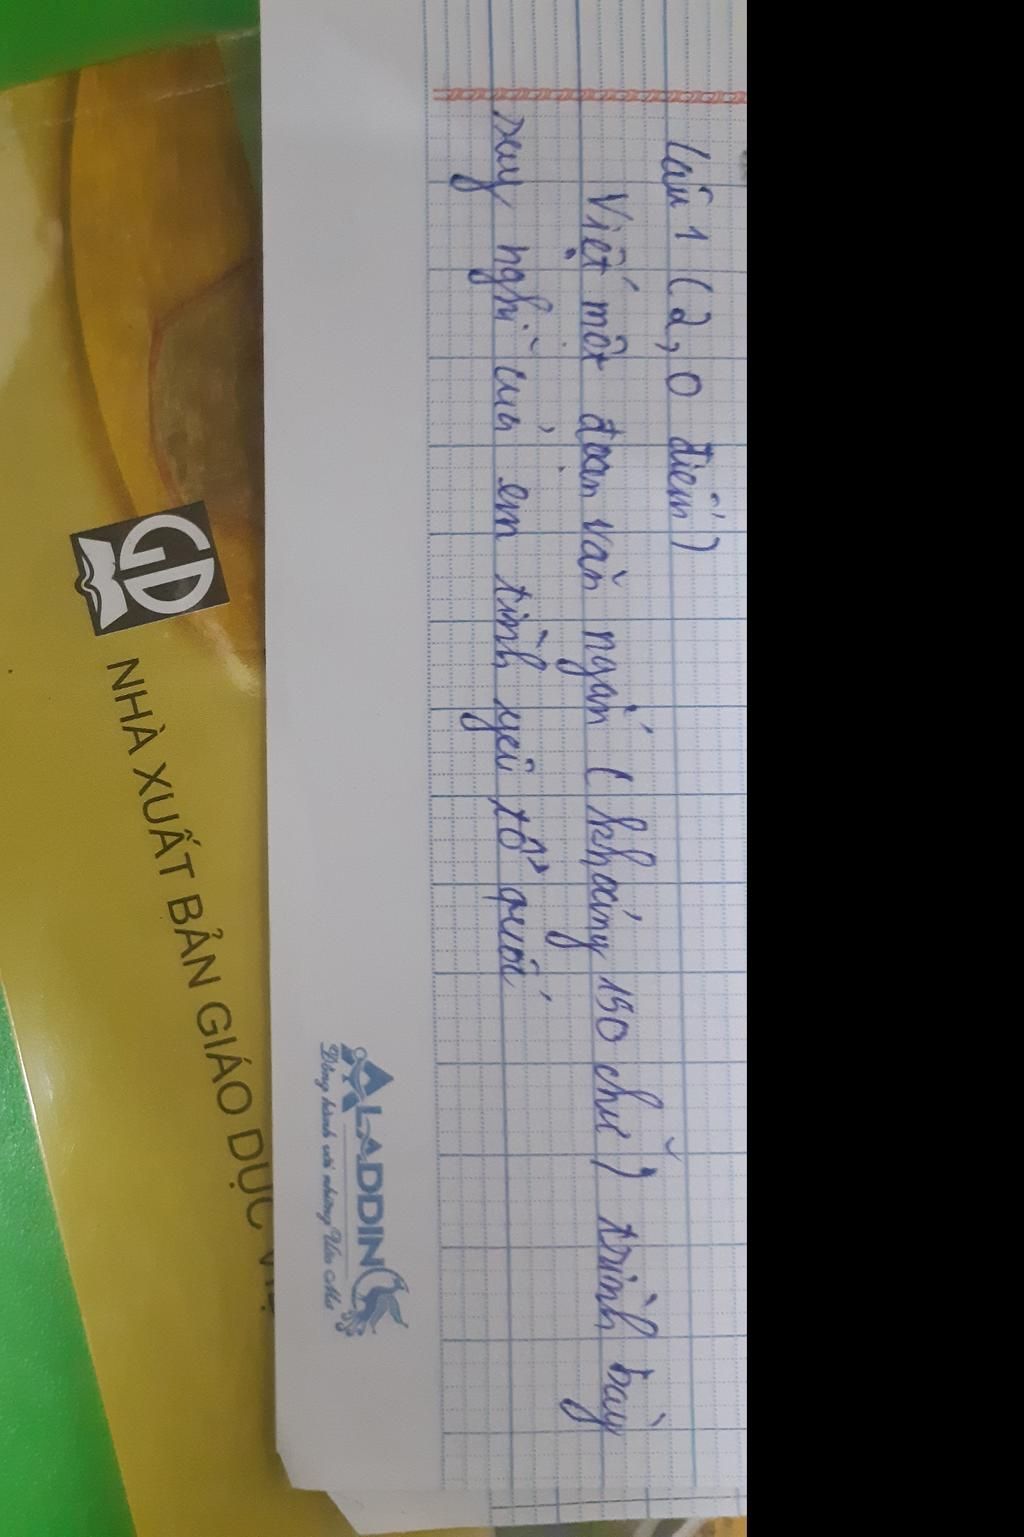 Câu 1 (2,0 điểm)
Viết một đoạn văn ngắn (khoảng 150 chữ) trình bày
suy nghĩ của em tình yêu tổ quốc
ALADDIN
Đồng hành với những Ước Mơ
GD
NHÀ XUẤT BẢN GIÁO DỤC